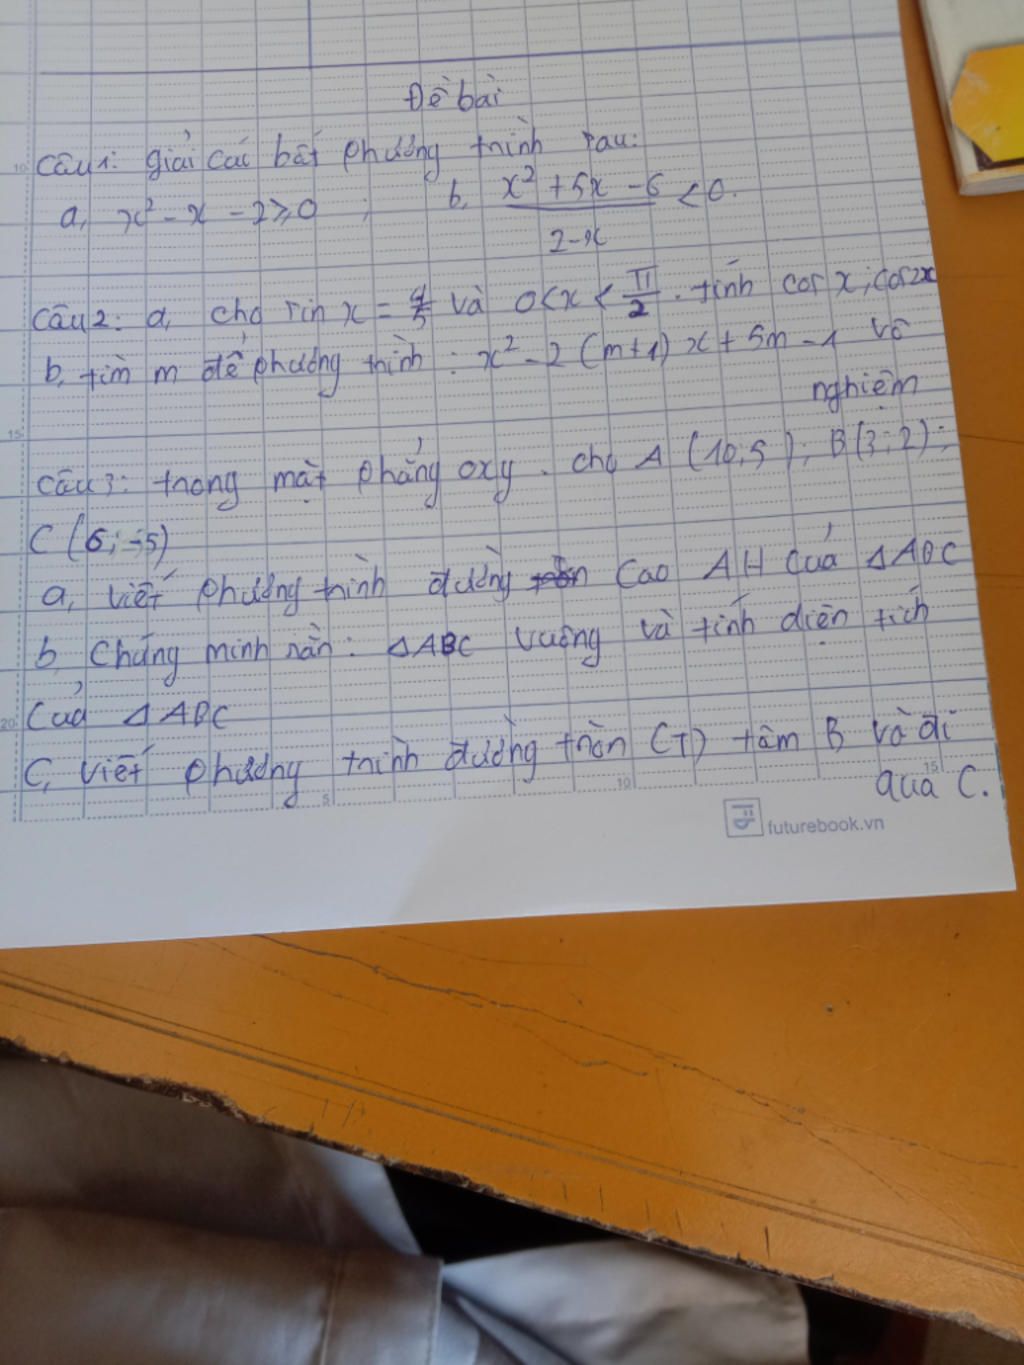 Đề bài
10 Câu 1: giải các bất phương trình sau:
a, x² - x - 2 ≥ 0 ; b, (x² + 5x - 6)/(2-x) < 0.
Câu 2: a, cho sin x = 4/5 và 0 < x < π/2 . tính cos x ; cos 2x
b, tìm m để phương trình : x² - 2 (m+1) x + 5m - 1 vô
nghiệm
15
Câu 3: trong mặt phẳng oxy . cho A (10;5) ; B (3;2) ;
C (6;-5)
a, viết phương trình đường cao AH của ΔABC
b, Chứng minh rằn : ΔABC vuông và tính diện tích
20 Của ΔABC
C, viết phương trình đường tròn (T) tâm B và đi
qua C.
5 10 15
futurebook.vn